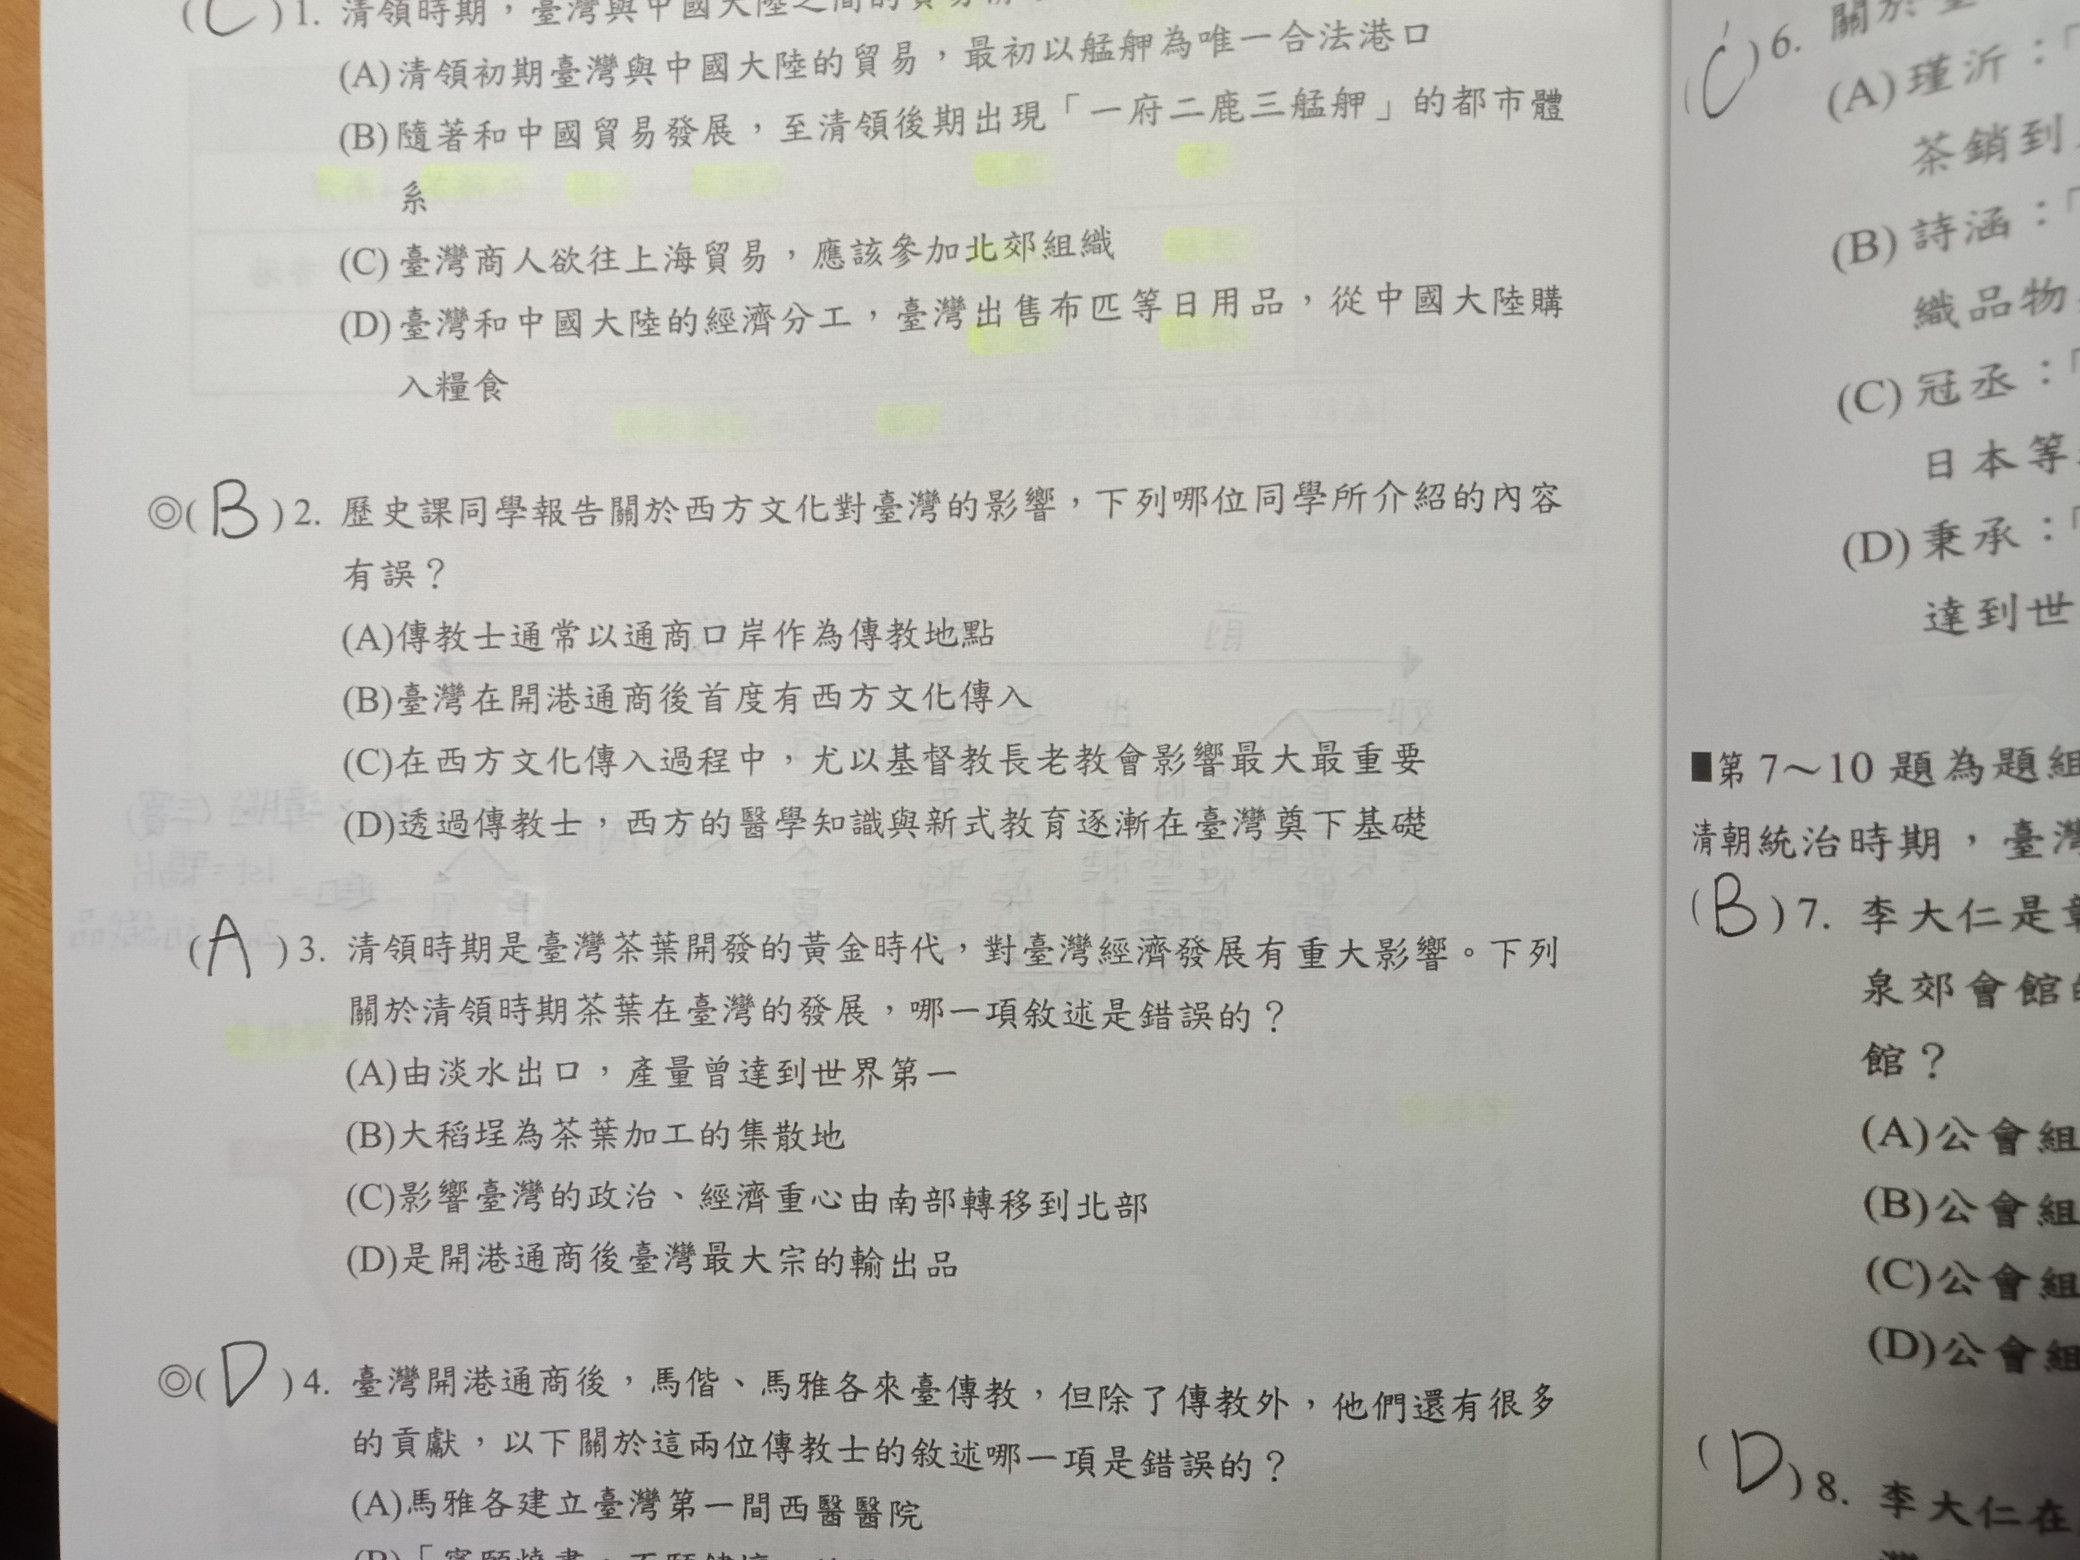 (C)1. 清領時期，臺灣與中國大陸之間的貿易
(A)清領初期臺灣與中國大陸的貿易，最初以艋舺為唯一合法港口
(B)隨著和中國貿易發展，至清領後期出現「一府二鹿三艋舺」的都市體
系
(C)臺灣商人欲往上海貿易，應該參加北郊組織
(D)臺灣和中國大陸的經濟分工，臺灣出售布匹等日用品，從中國大陸購
入糧食
◎(B)2. 歷史課同學報告關於西方文化對臺灣的影響，下列哪位同學所介紹的內容
有誤？
(A)傳教士通常以通商口岸作為傳教地點
(B)臺灣在開港通商後首度有西方文化傳入
(C)在西方文化傳入過程中，尤以基督教長老教會影響最大最重要
(D)透過傳教士，西方的醫學知識與新式教育逐漸在臺灣奠下基礎
(A)3. 清領時期是臺灣茶葉開發的黃金時代，對臺灣經濟發展有重大影響。下列
關於清領時期茶葉在臺灣的發展，哪一項敘述是錯誤的？
(A)由淡水出口，產量曾達到世界第一
(B)大稻埕為茶葉加工的集散地
(C)影響臺灣的政治、經濟重心由南部轉移到北部
(D)是開港通商後臺灣最大宗的輸出品
◎(D)4. 臺灣開港通商後，馬偕、馬雅各來臺傳教，但除了傳教外，他們還有很多
的貢獻，以下關於這兩位傳教士的敘述哪一項是錯誤的？
(A)馬雅各建立臺灣第一間西醫醫院
(C)6. 關於
(A)瑾沂：「
茶銷到
(B)詩涵：「
織品物
(C)冠丞：「
日本等
(D)秉承：「
達到世
■第7～10題為題組
清朝統治時期，臺灣
(B)7. 李大仁是
泉郊會館
館？
(A)公會組
(B)公會組
(C)公會組
(D)公會組
(D)8. 李大仁在